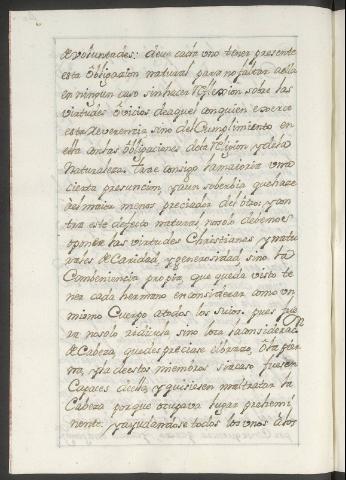 de voluntades: deve cada uno tener presente
esta obligazion natural para no faltar a ella
en ningun caso sin hacer reflexion sobre las
virtudes ô vicios de aquel con quien exerce
esta reverencia sino del cumplimiento en
ella con las obligaciones de la religion y de la
Naturaleza. Trae consigo la maioria una
cierta presuncion, y aun soberbia que haze
del maior menos preciador del otro: y con
tra este defecto natural no solo debemos
oponer las virtudes Christianas y natu
rales de Caridad y generosidad sino la
Combeniencia propia, que queda visto te
ner cada hermano en considerar como un
mismo Cuerpo a todos los suios. pues fue
ra no solo ridicula sino loca la considerada
de Cabeza que despreciase el brazo, ô la pier
na, y la de estos miembros si acaso fuesen
Capaces de ella, y quisiesen maltratar la
Cabeza porque ocupava lugar prehemi
nente. y ayudandose todos los unos a los